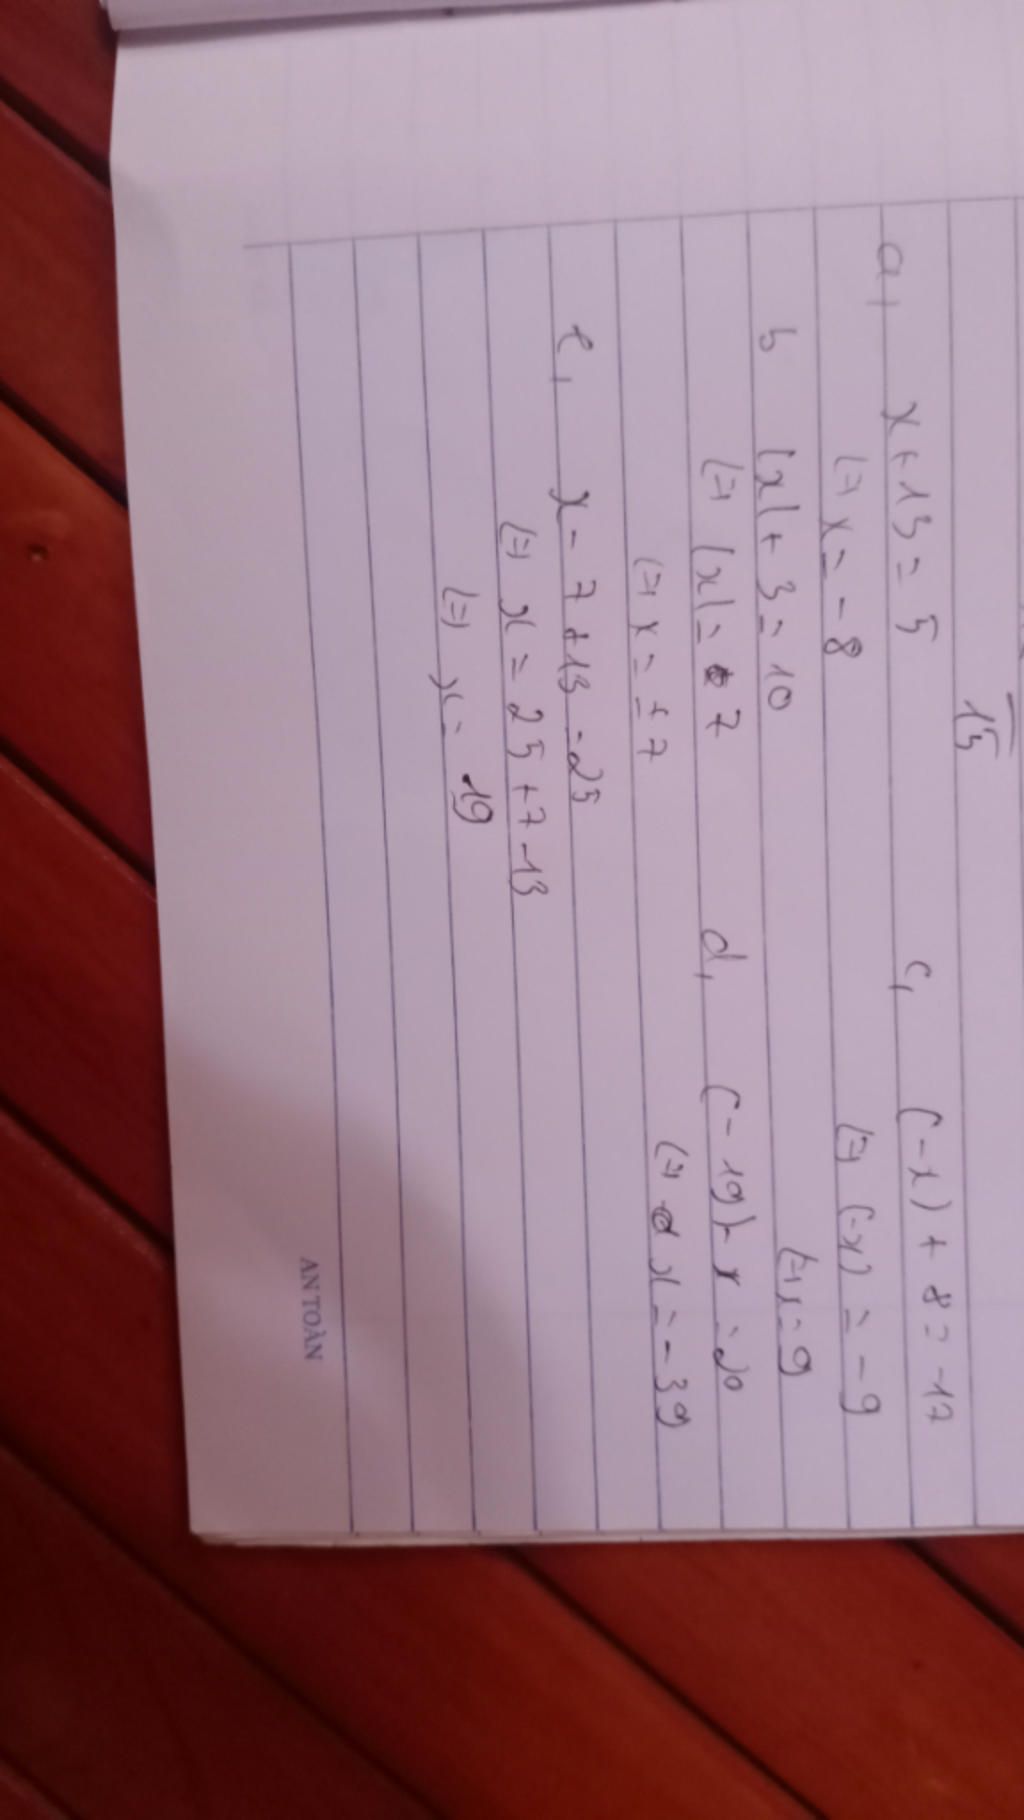 15
a, x + 13 = 5
(=) x = -8
b |x| + 3 = 10
(=) |x| = 7
(=) x = ±7
c, (-x) + 8 = -17
(=) (-x) = -9
(=) x = 9
d, (-19) - x = 20
(=) x = -39
e, x - 7 + 13 = 25
(=) x = 25 + 7 - 13
(=) x = 19
AN TOÀN